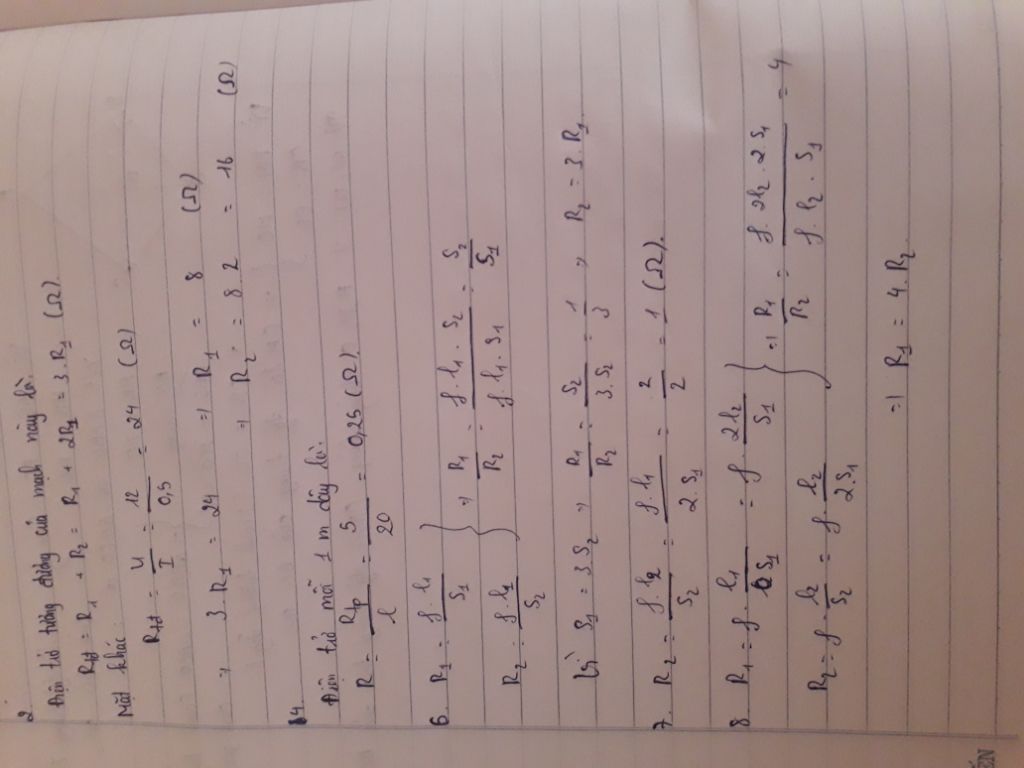 2.
Điện trở tương đương của mạch này là:
Rtđ = R1 + R2 = R1 + 2R1 = 3.R1 (Ω)
Mặt khác:
Rtđ = U/I = 12/0,5 = 24 (Ω)
=> 3.R1 = 24 => R1 = 8 (Ω)
=> R2 = 8 2 = 16 (Ω)
4
Điện trở mỗi 1 m dây là:
R = Rtp/l = 5/20 = 0,25 (Ω)
6. R1 = ρ.l1/S1 } => R1/R2 = ρ.l1.S2/ρ.l1.S1 = S2/S1
R2 = ρ.l1/S2
Vì S1 = 3S2 => R1/R2 = S2/3.S2 = 1/3 => R2 = 3R1
7. R2 = ρ.l2/S2 = ρ.l1/2.S1 = 2/2 = 1 (Ω).
8. R1 = ρ.l1/S1 = ρ.2l2/S1 } => R1/R2 = ρ.2l2.2.S1/ρ.l2.S1 = 4
R2 = ρ.l2/S2 = ρ.l2/2.S1
=> R1 = 4.R2
ẾN